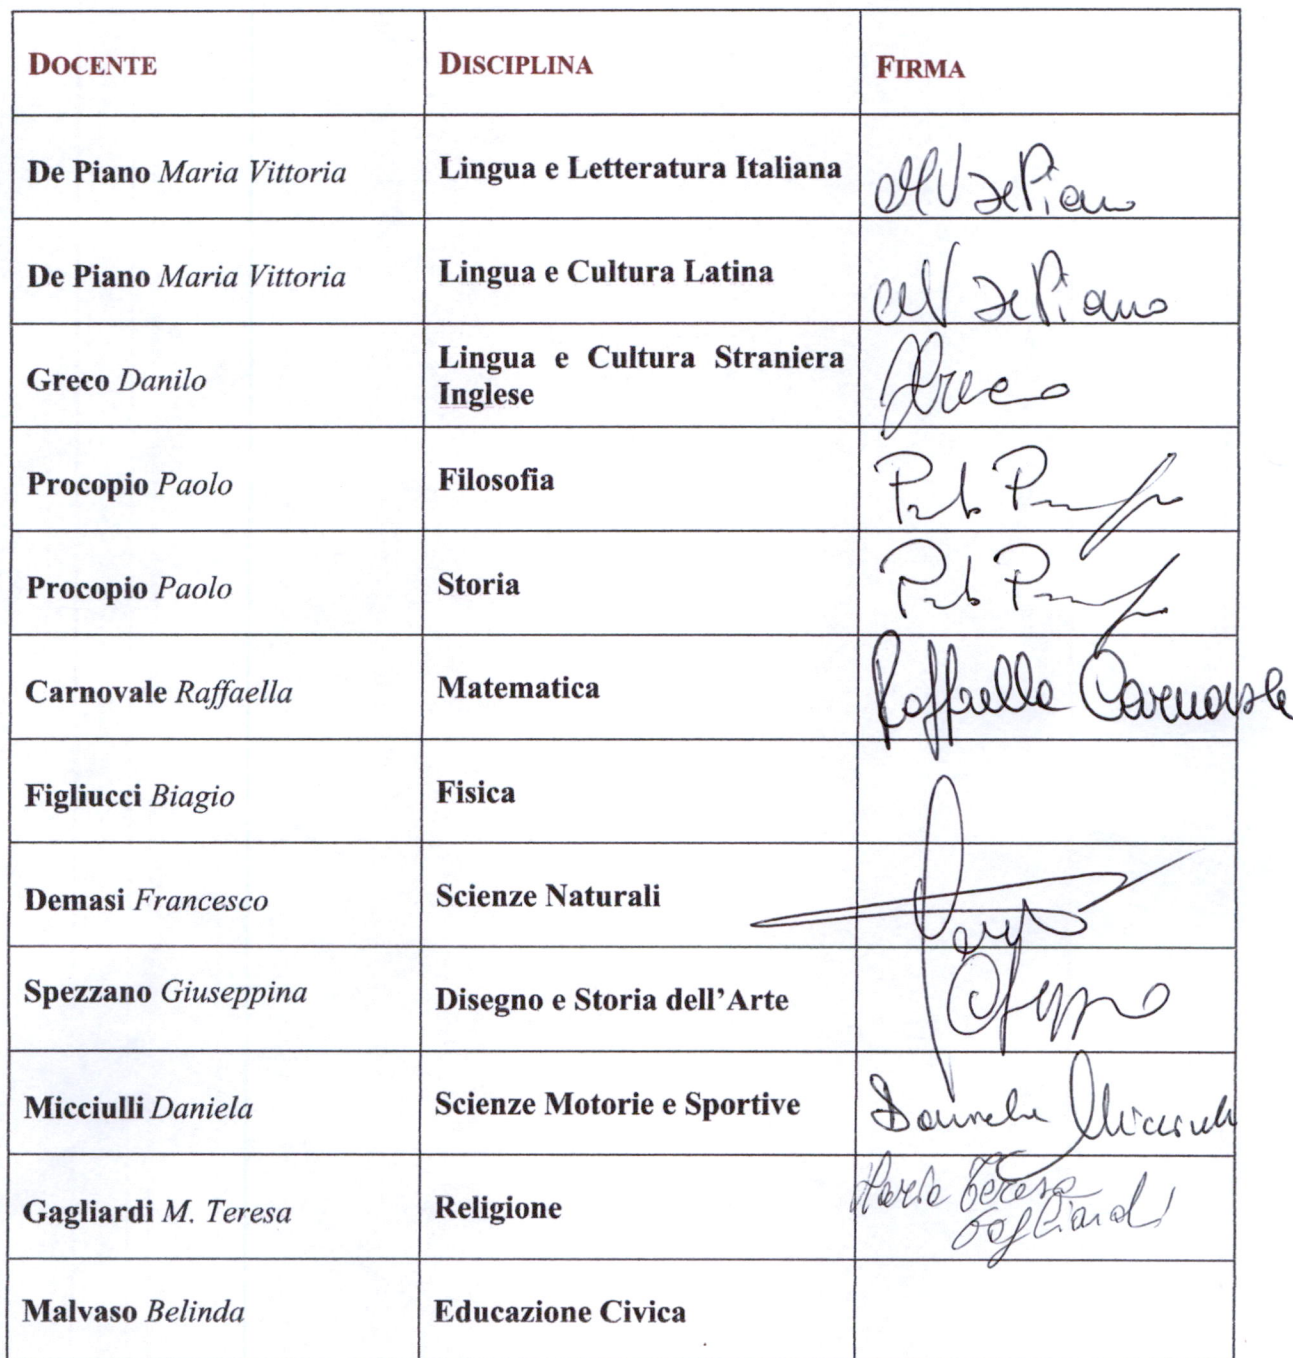 DOCENTE DISCIPLINA FIRMA
De Piano Maria Vittoria Lingua e Letteratura Italiana MV De Piano
De Piano Maria Vittoria Lingua e Cultura Latina MV De Piano
Greco Danilo Lingua e Cultura Straniera Greco
Inglese
Procopio Paolo Filosofia
Procopio Paolo Storia
Carnovale Raffaella Matematica Raffaella Carnovale
Figliucci Biagio Fisica
Demasi Francesco Scienze Naturali
Spezzano Giuseppina Disegno e Storia dell'Arte
Micciulli Daniela Scienze Motorie e Sportive Daniela Micciulli
Gagliardi M. Teresa Religione Maria Teresa
Gagliardi
Malvaso Belinda Educazione Civica